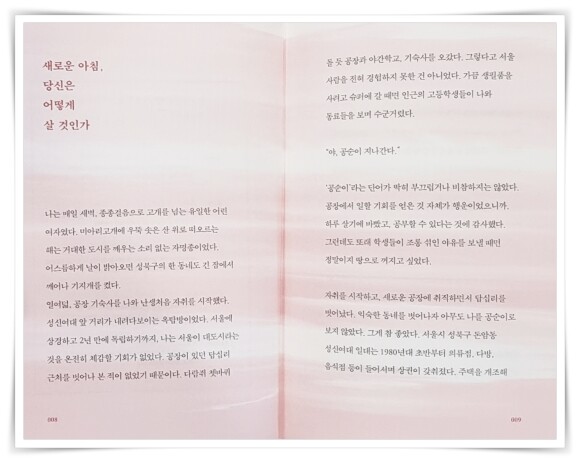 새로운 아침,
당신은
어떻게
살 것인가
나는 매일 새벽, 종종걸음으로 고개를 넘는 유일한 어린
여자였다. 미아리고개에 우뚝 솟은 산 위로 떠오르는
해는 거대한 도시를 깨우는 소리 없는 자명종이었다.
어스름하게 날이 밝아오면 성북구의 한 동네도 긴 잠에서
깨어나 기지개를 켰다.
열여덟, 공장 기숙사를 나와 난생처음 자취를 시작했다.
성신여대 앞 거리가 내려다보이는 옥탑방이었다. 서울에
상경하고 2년 만에 독립하기까지, 나는 서울이 대도시라는
것을 온전히 체감할 기회가 없었다. 공장이 있던 답십리
근처를 벗어나 본 적이 없었기 때문이다. 다람쥐 쳇바퀴
008
돌 듯 공장과 야간학교, 기숙사를 오갔다. 그렇다고 서울
사람을 전혀 경험하지 못한 건 아니었다. 가끔 생필품을
사려고 슈퍼에 갈 때면 인근의 고등학생들이 나와
동료들을 보며 수군거렸다.
“야, 공순이 지나간다.”
‘공순이’라는 단어가 딱히 부끄럽거나 비참하지는 않았다.
공장에서 일할 기회를 얻은 것 자체가 행운이었으니까.
하루 살기에 바빴고, 공부할 수 있다는 것에 감사했다.
그런데도 또래 학생들이 조롱 섞인 야유를 보낼 때면
정말이지 땅으로 꺼지고 싶었다.
자취를 시작하고, 새로운 공장에 취직하면서 답십리를
벗어났다. 익숙한 동네를 벗어나자 아무도 나를 공순이로
보지 않았다. 그게 참 좋았다. 서울시 성북구 돈암동
성신여대 일대는 1980년대 초반부터 의류점, 다방,
음식점 등이 들어서며 상권이 갖춰졌다. 주택을 개조해
009